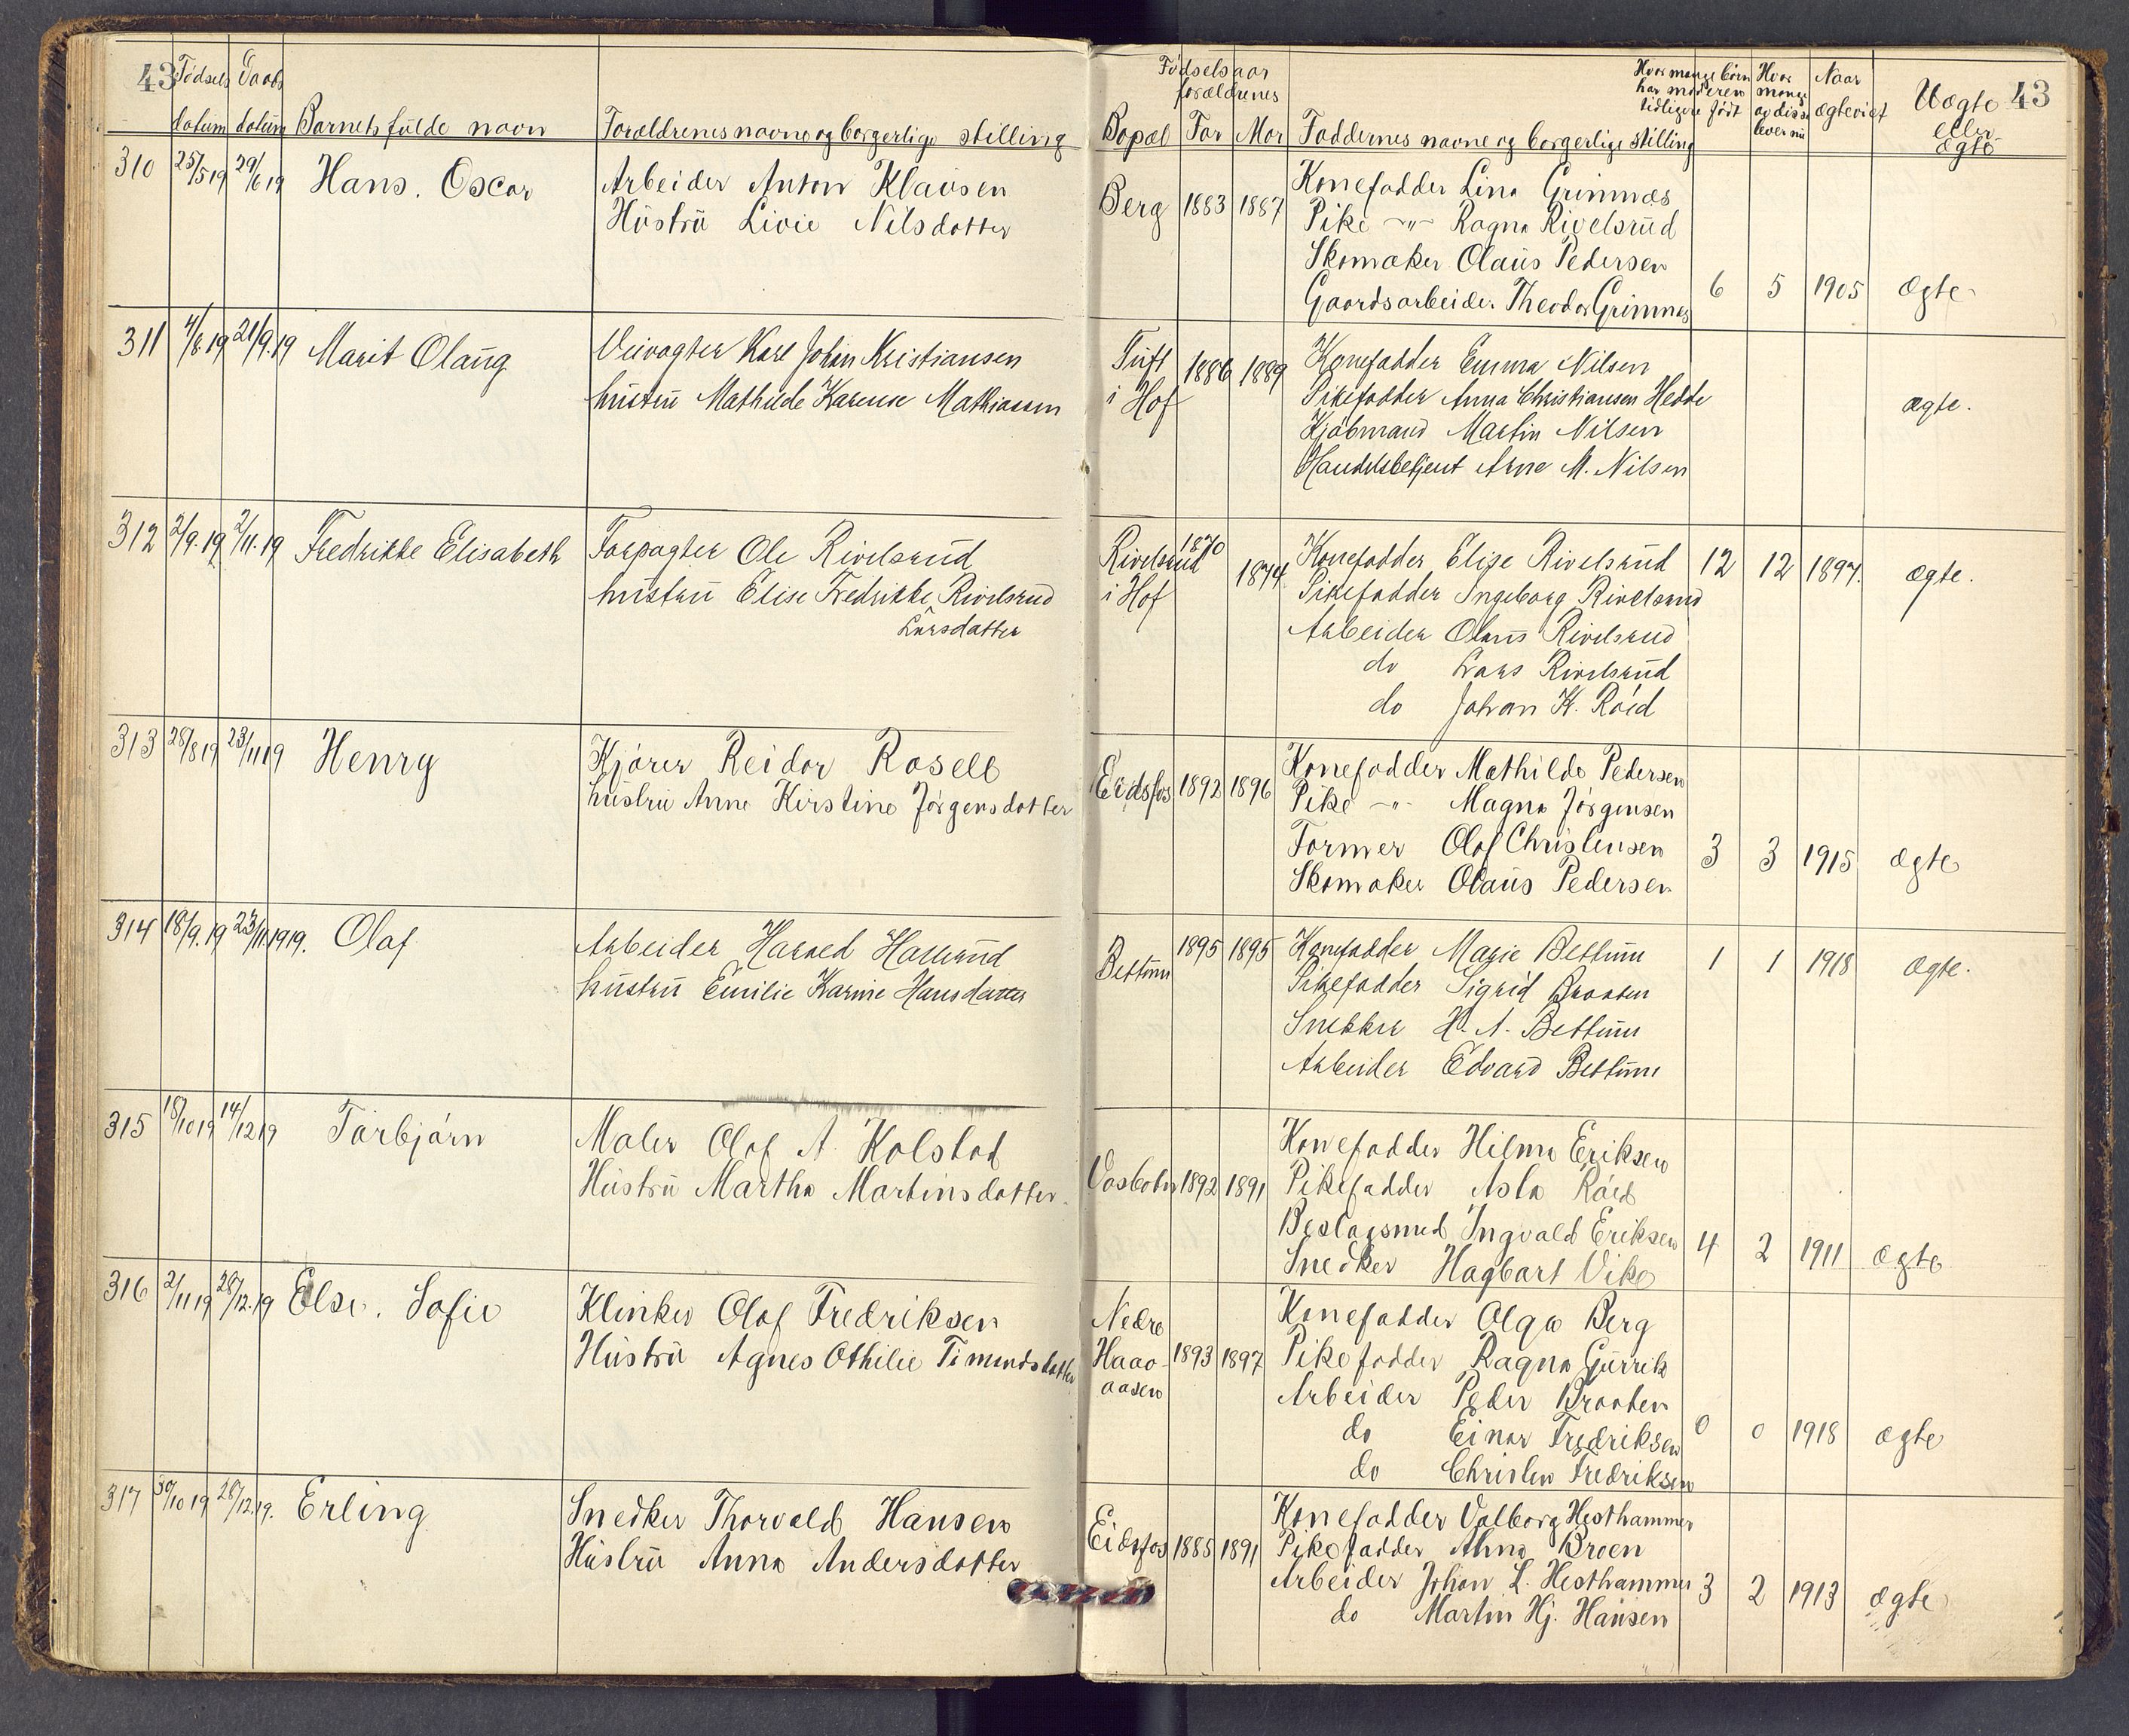 43 Fødsels datum Daabs datum Barnets fulde navn Forældrenes navne og borgerlige stilling
Bopæl Fødselsaar forældrenes Far Mor Faddernes navne og borgerlige stilling Hvor mange børn har moderen tidligere født Hvor mange av disse lever nu Naar ægteviet Uægte eller ægte 43
310 25/5 19 29/6 19 Hans. Oscar Arbeider Anton Klausen
Hustru Livie Nilsdatter
Berg 1883 1887 Konefadder Lina Grimnæs
Pike —"— Ragna Rivelsrud
Skomaker Olaus Pedersen
Gaardsarbeider Theodor Grimnæs 6 5 1905 Ægte
311 4/8 19 21/9.19 Marit Olaug Veivagter Karl Johan Kristiansen
hustru Mathilde Karense Mathiasen
Tuft i Hof 1886 1889 Konefadder Emma Nilsen
Pikefadder Anna Christiansen Hedde
Kjøbmand Martin Nilsen
Handelsbetjent Arne M. Nilsen
ægte.
312 2/9.19 2/11.19 Fredrikke Elisabeth Forpagter Ole Rivelsrud
hustru Elise Fredrikke Rivelsrud
Larsdatter
Rivelsrud i Hof 1870 1874 Konefadder Elise Rivelsrud 12 12 1897. ægte.
Pikefadder Ingeborg Rivelsrud
Arbeider Olaus Rivelsrud
do Lars Rivelsrud
do Johan K. Røed
313 28/8 19 23/11 19 Henry Kjører Reidar Rosell
hustru Anne Kirstine Jørgensdatter
Eidsfos 1892 1896 Konefadder Mathilde Pedersen
Pike —"— Magna Jørgensen
Former Olaf Christensen
Skomaker Olaus Pedersen 3 3 1915 ægte
314 18/9.19 23/11.1919. Olaf Arbeider Harald
hustru Emilie Karine Hansdatter
Bettum 1895 1895 Konefadder Marie Bettum 1 1 1918 ægte.
Pikefadder Sigrid Braaten
Snekker H. A. Bettum
Arbeider Edvard Bettum
315 18/10 19 14/12 19 Torbjørn Maler Olaf A. Kolstad
Hustru Martha Martinsdatter.
Vasbotn 1892 1891 Konefadder Hilma Eriksen
Pikefadder Asla Røed
Beslagsmed Ingvald Eriksen
Snedker Hagbart Vike 4 2 1911 ægte
316 2/11 19 28/12.19 Else. Sofie Klinker Olaf Fredriksen
Hustru Agnes Othilie Timandsdatter
Nedre Haaoaasen 1893 1897 Konefadder Olga Berg
Pikefadder Ragna Gurrik
Arbeider Peder Braaten
do Einar Fredriksen
do Christen Fredriksen 0 0 1918 ægte
317 30/10 19 28/12.19. Erling Snedker Thorvald Hansen
Hustru Anna Andersdatter
Eidsfos 1885 1891 Konefadder Valborg Hesthammer
Pikefadder Anna Broen
Arbeider Johan L. Hesthammer
do Martin Hj. Hansen 3 2 1913 ægte